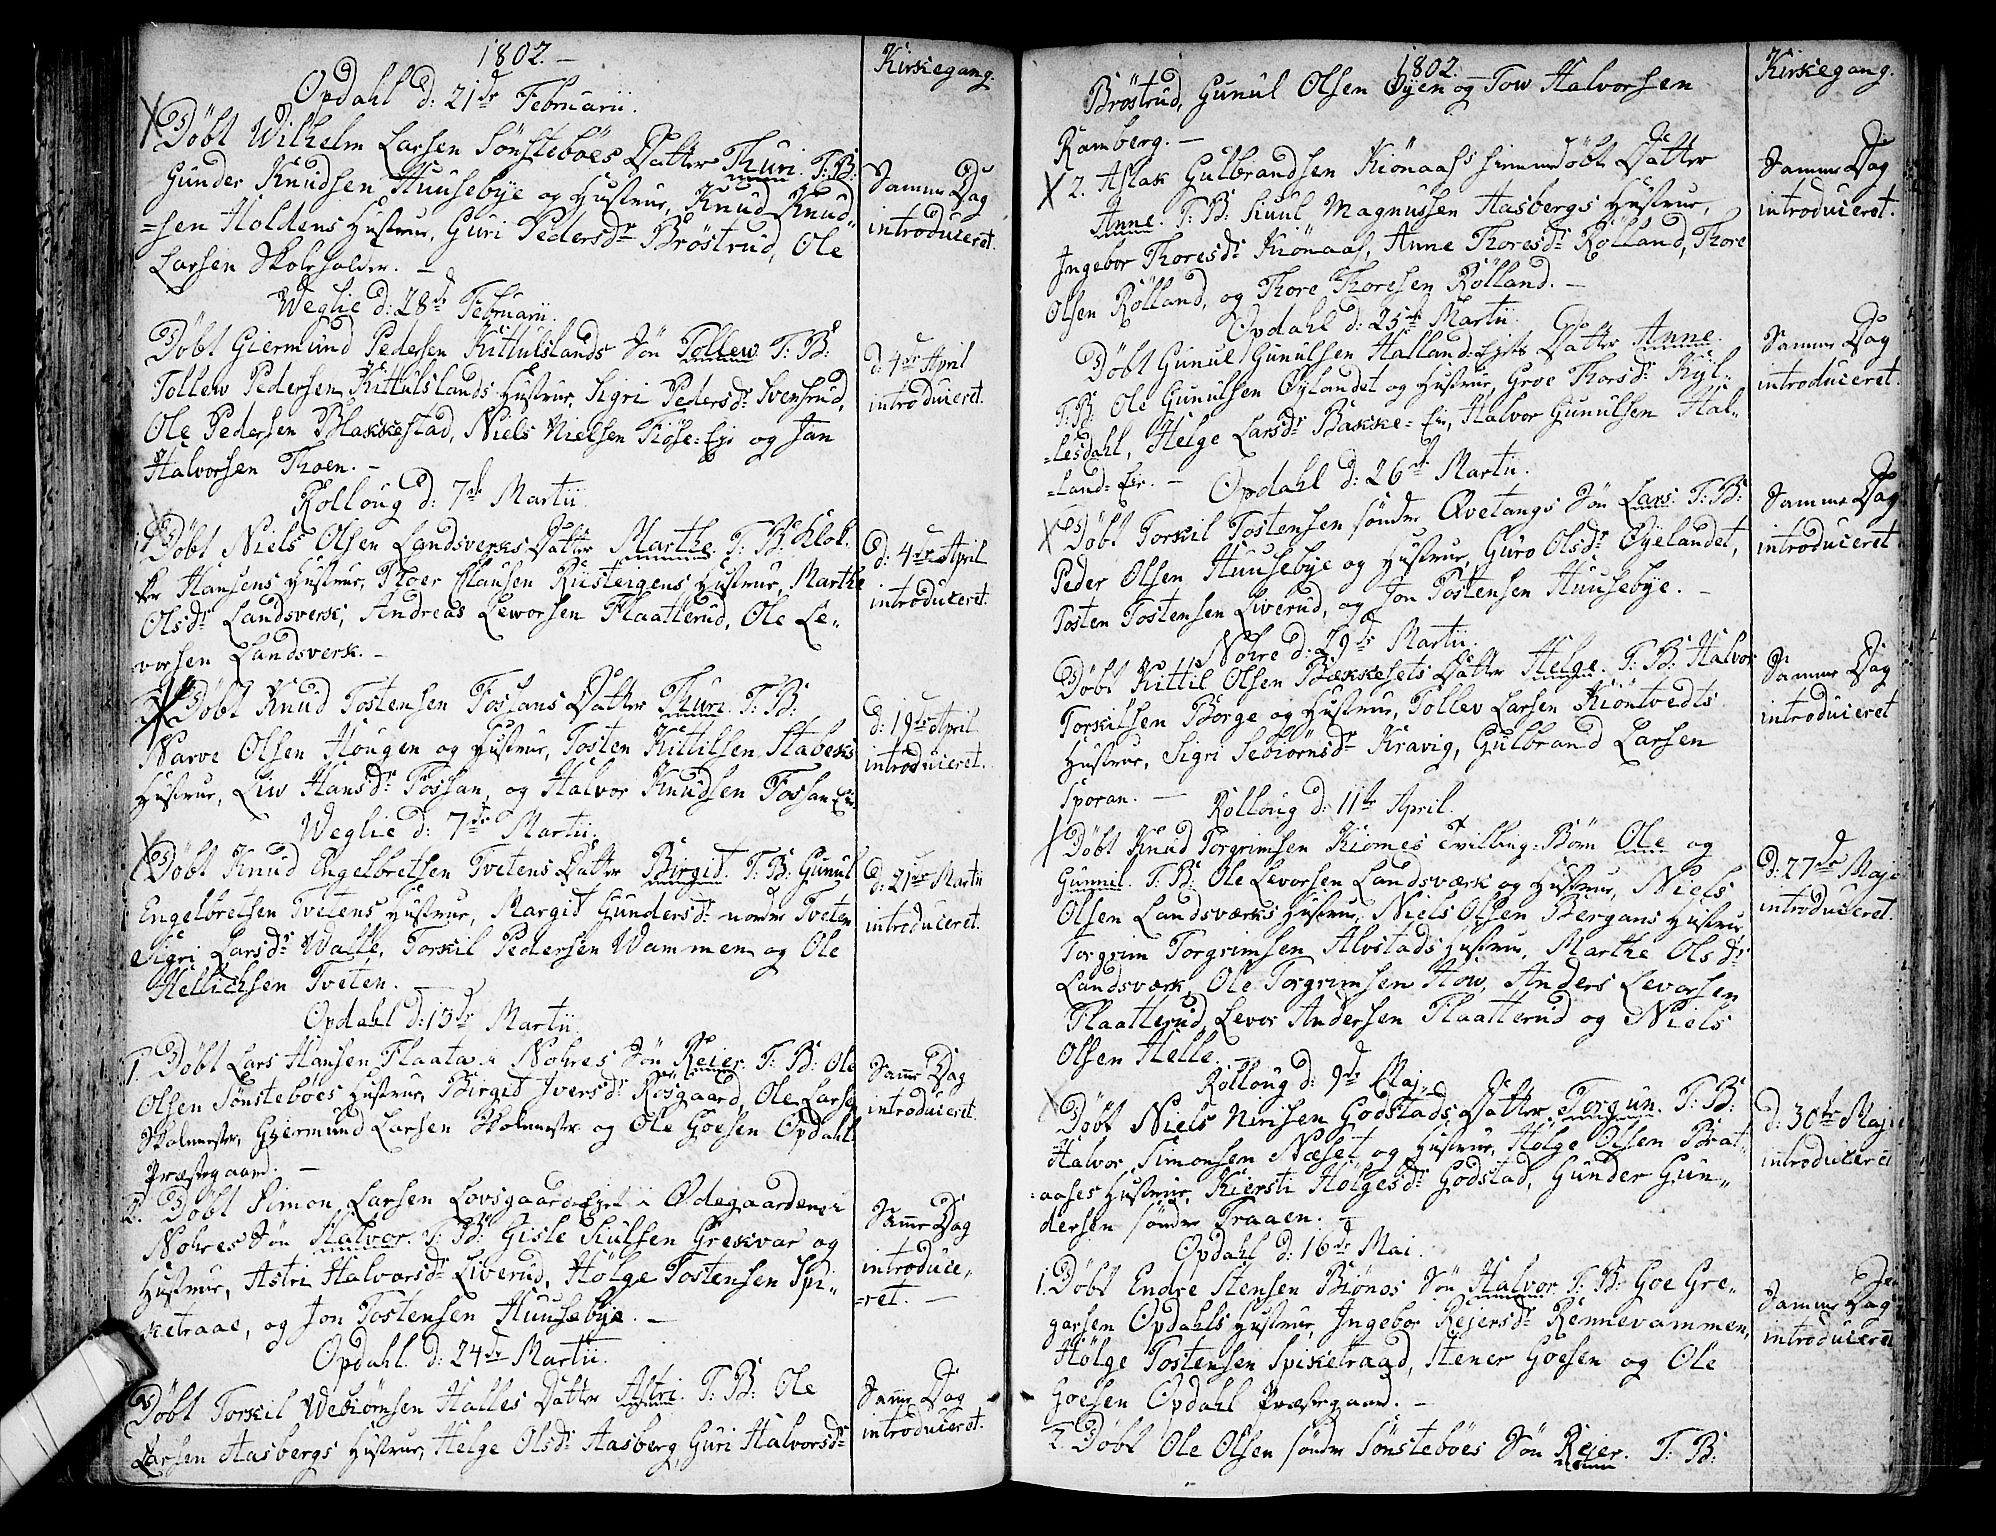 1802.
Kirkegang.
Opdahl d: 21de Februarii.
Döbt Wilhelm Larsen Sönsteböes Datter Thuri. T: B:
Gunder Knudsen Huusebye og Hustrue, Knud Knud-
=sen Holdens Hustrue, Guri Pedersdr Bröstrud, Ole
Larsen Skoleholder. –
Samme Dag
introduceret.
Weglie d: 28de Februarii.
Döbt Giermund Pedersen Kittulslands Sön Tollew. T: B:
Tollew Pedersen Kittulslands Hustrue, Sigri Pedersdr Svensrud,
Ole Pedersen Blakkestad, Niels Nielsen Fröse=Eje og Jan
Halvorsen Thoen. –
d: 4de April
introduceret.
Rolloug d: 7de Martii
1. Döbt Niels Olsen Landsverks Datter Marthe. T: B: Klok-
ker Hansens Hustrue, Thoer Clausen Riisteigens Hustrue, Marthe
Olsdr Landsverk, Andreas Leworsen Flaatterud, Ole Le-
vorsen Landsverk. –
d: 4de April
introduceret.
2. Döbt Knud Tostensen Fossans Datter Thuri. T: B:
Narve Olsen Hougen og Hustrue, Tosten Kittilsen Stabeks
Hustrue, Liw Hansdr Fossan, og Halvor Knudsen Fossan Eie
d: 19de April
introduceret.
Weglie d: 7de Martii.
Döbt Knud Engelbretsen Tvetens Datter Birgit. T: B: Gunul
Engelbretsen Tvetens Hustrue, Margit Gundersdr nordre Tveten
Sigri Larsdr Walle, Torkil Pedersen Wammen og Ole
Hellichsen Tveten.
d: 21de Martii
introduceret.
Opdahl d: 13de Martii
1. Döbt Lars Hansen Flaata i Nohres Sön Reier. T: B: Ole
Olsen Sönsteböes Hustrue, Birgit Iversdr Rosgaard, Ole Larsen
Skolemester, Giermund Larsen Skolemester og Ole Goesen Opdahl
Præstegaard. –
Samme Dag
introduceret.
2. Döbt Simon Larsen Lovsgaards Eje i Ødegaarden i
Nohres Sön Halvor. T: B: Gisle Siulsen Grekvar og
Hustrue, Astri Halvorsdr Liverud, Hölge Tostensen Spi-
ketraae, og Jon Tostensen Huusebye. –
Samme Dag
introduce-
=ret. –
Opdahl d: 24de Martii.
Döbt Torkil Webiörnsen Halles Datter Astri. T: B: Ole
Larsen Aasbergs Hustrue, Helge Olsdr Aasberg, Guri Halvorsdr
Samme Dag
introduceret.
1802.
Kirkegang.
Bröstrud, Gunul Olsen Øyen og Tow Halvorsen
Ramberg. –
2. Aslak Gulbrandsen Kiönaass hiemmedöbt Datter
Anne. T: B: Siuul Magnussen Aasbergs Hustrue,
Ingebor Thoresdr Kiönaas, Anne Thoresdr Rölland, Thore
Olsen Rölland, og Thore Thoresen Rölland. –
Samme Dag
introduceret.
Opdahl d: 25de Martii.
Döbt Gunul Gunulsen Halland=Ejets Datter Anne.
T: B: Ole Gunulsen Øylandet og Hustrue, Groe Thorsdr Kyl-
=lesdahl, Helge Larsdr Bakke=Eie, Halvor Gunulsen Hal-
=land=Eie. –
Samme Dag
introduceret.
Opdahl d: 26de Martii.
Döbt Torkil Tostensen söndre Qvetangs Sön Lars. T: B:
Peder Olsen Huusebye og Hustrue, Guro Olsdr Øyelandet,
Tosten Tostensen Liverud, og Jon Tostensen Huusebye. –
Samme Dag
introduceret
Nohre d: 29de Martii.
Döbt Kittil Olsen Bækkesets Datter Helge. T: B: Halvor
Torkilsen Borge og Hustrue, Tollev Larsen Kiöntvedts
Hustrue, Sigri Sebiörnsdr Kravig, Gulbrand Larsen
Sporan. –
Samme Dag
introduceret
Rolloug d: 11te April.
Döbt Knud Torgrimsen Kiomes Tvilling=Börn Ole og
Gunnil. T: B: Ole Levorsen Landsværk og Hustrue, Niels
Olsen Landsværks Hustrue, Niels Olsen Bergans Hustrue,
Torgrim Torgrimsen Alvstads Hustrue, Marthe Olsdr
Landsværk, Ole Torgrimsen How, Anders Levorsen
Flaatterud, Levor Andersen Flaatterud og Niels
Olsen Helle.
d: 27de Maji
introduceret.
Rolloug d: 9de Maj.
Döbt Niels Nirisen Godstads Datter Torgun. T: B:
Halvor Simonsen Næset og Hustrue, Hölge Olsen Brat-
=aases Hustrue, Kiersti Hölgesdr Godstad, Gunder Gun-
dersen söndre Traaen. –
d: 30te Maji
introduceret
Opdahl d: 16de Mai.
1. Döbt Endre Stensen Biönos Sön Halvor. T: B: Goe Gre-
garsen Opdahls Hustrue, Ingebor Rejersdr Rennevammen,
Hölge Tostensen Spiketraad, Stener Goesen og Ole
Goesen Opdahl Præstegaard. –
Samme Dag
introduceret
2. Döbt Ole Olsen söndre Sönsteböes Sön Rejer. T: B: